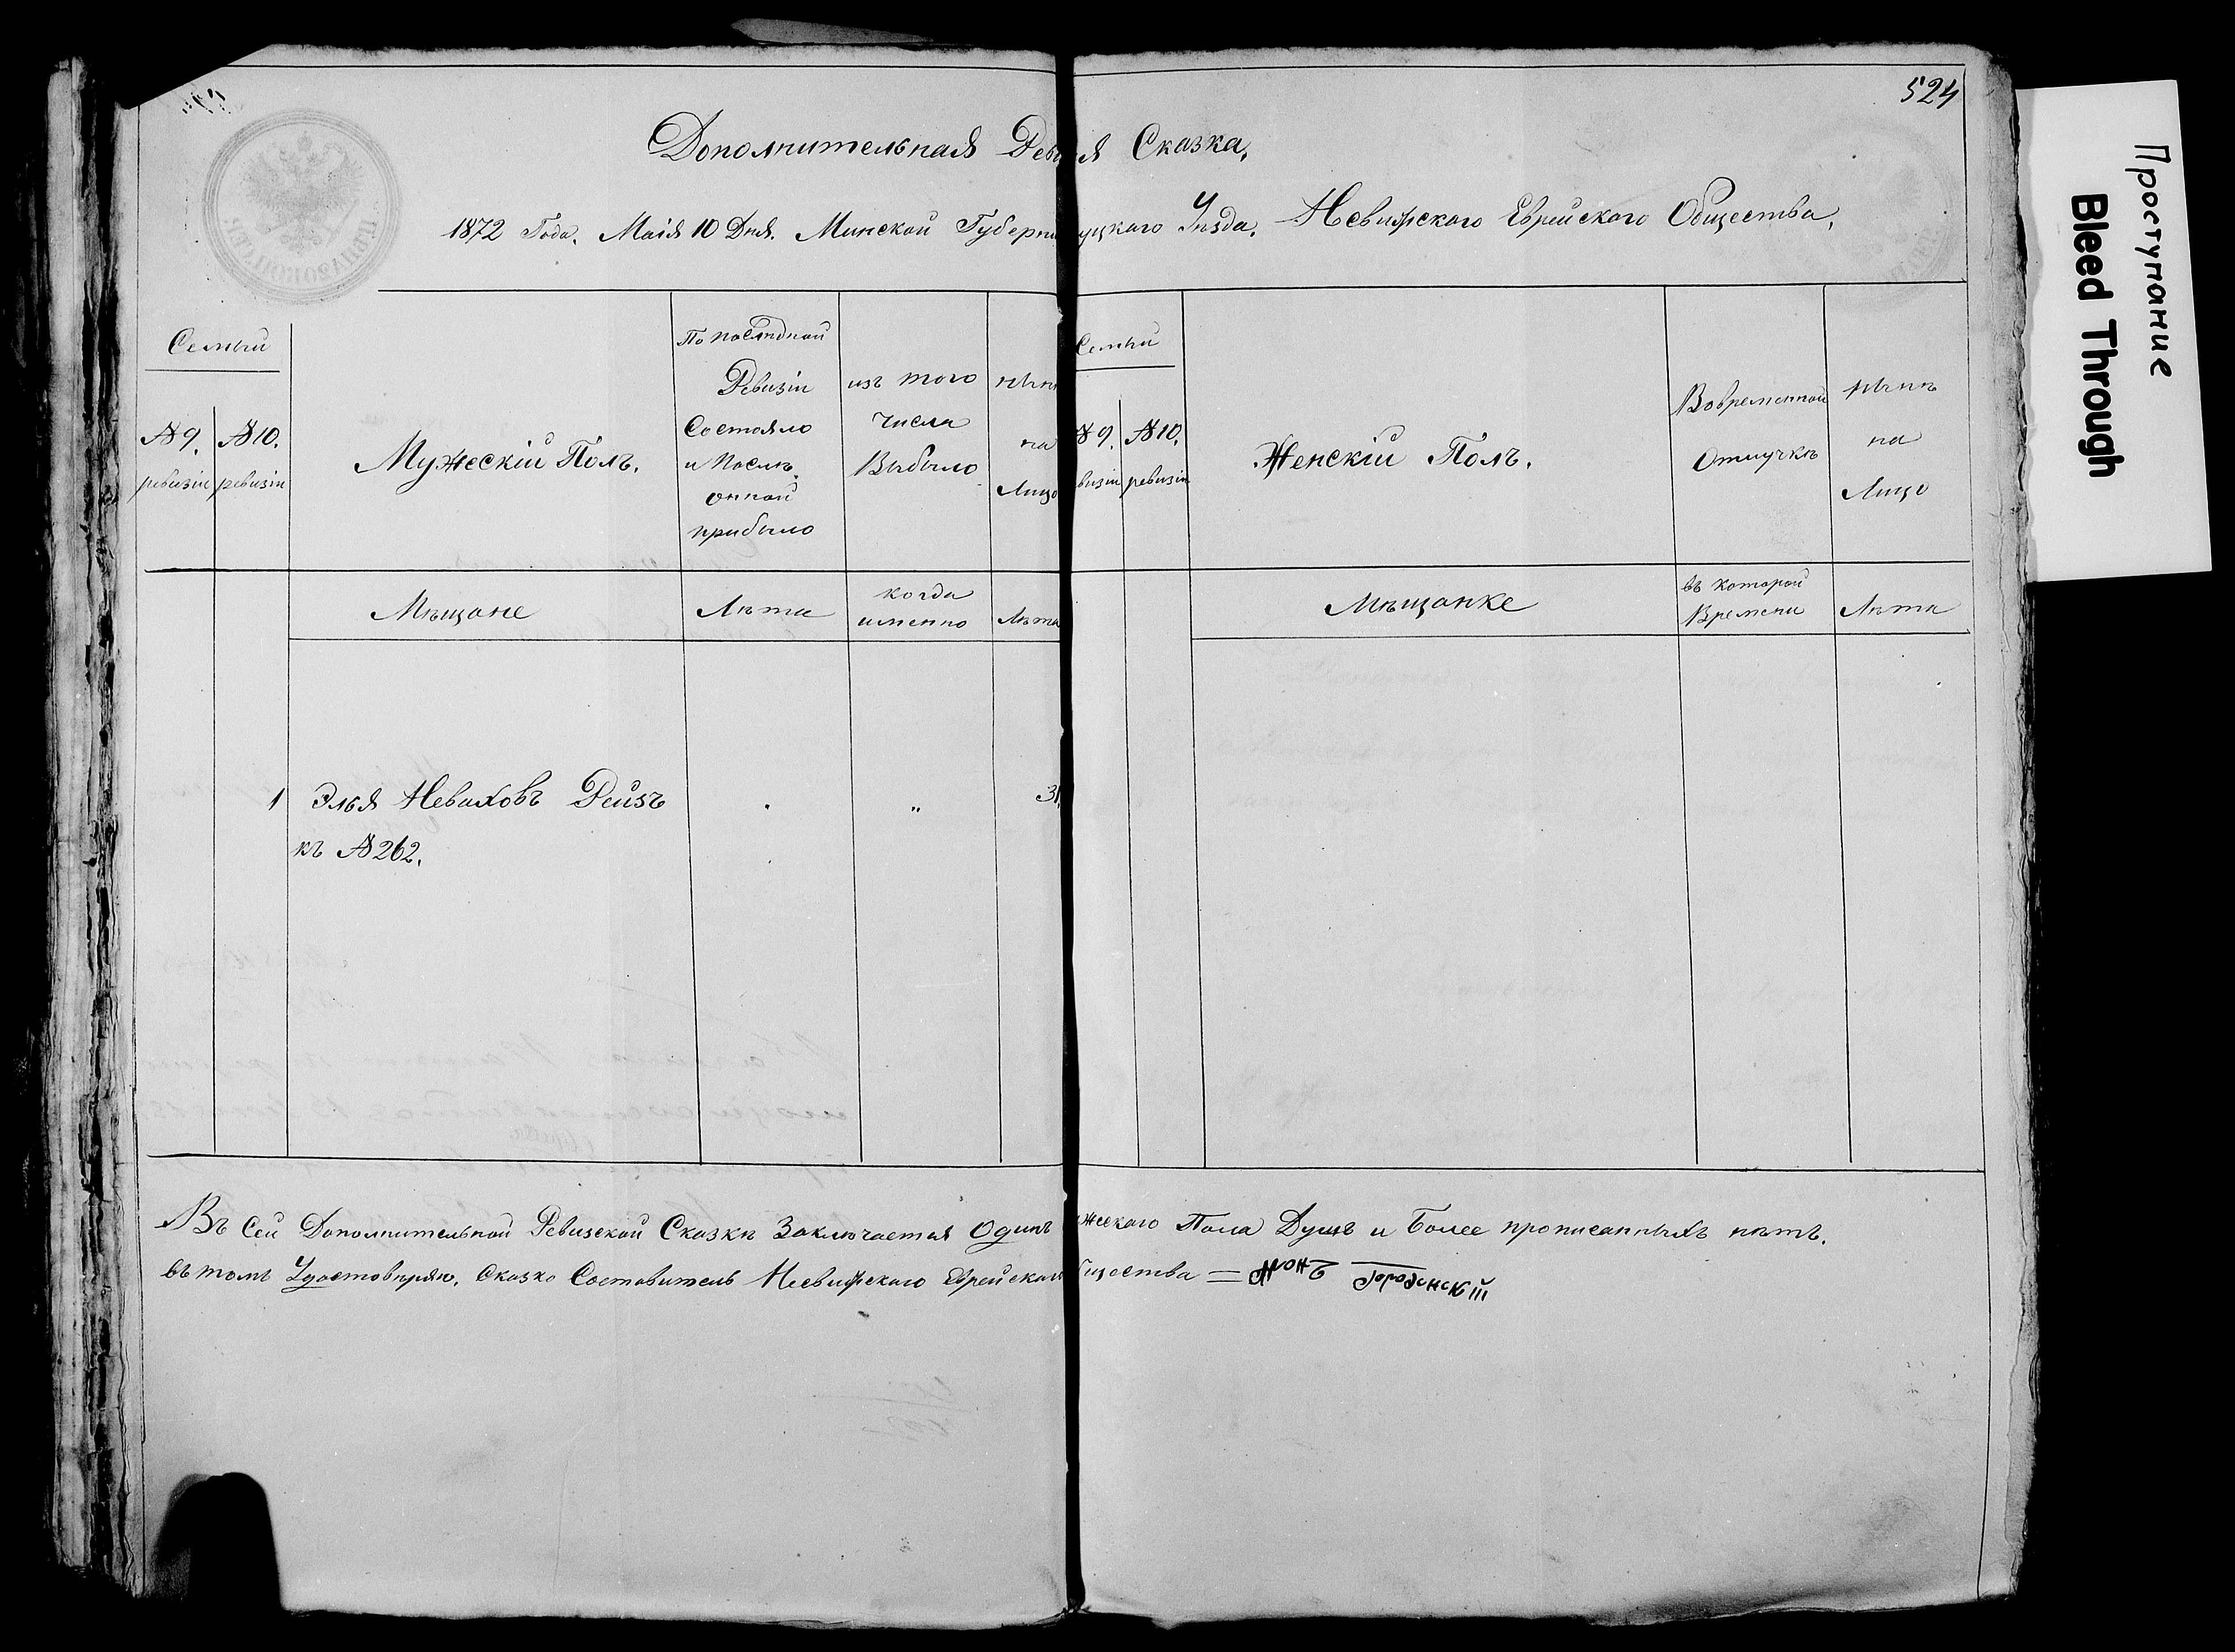 524
Дополнительная Рев я Сказка.
1872 Года. Маія 10 Дня. Минской Губерн уцкаго Уѣзда. Несвижскаго Еврейскаго Общества.
Семьи
№ 9. ревизіи
№ 10. ревизіи
Мужескій Полъ.
По послѣдней
Ревизіи
Состояло
и Послѣ
оной
прибыло
изъ того
числа
Выбыло
нынѣ
на
Лицо
Мѣщане
Лѣта
когда
именно
Лѣта
1 Элья Неваховъ Рейзъ " 31
къ № 262.
Семьи
№ 9. визіи
№ 10. ревизіи
Женскій Полъ.
Вовременной
Отлучкѣ
нынѣ
на
Лицо
Мѣщанке
въ которой
Времени
Лѣта
Въ Сей Дополнительной Ревизской Сказкѣ Заключается Одинъ жескаго Пола Душъ и Более прописанныхъ нѣтъ.
въ томъ Удостовѣряю. Сказко Составитель Несвижскаго Еврейскаго бщества =
Проступание
Bleed Through